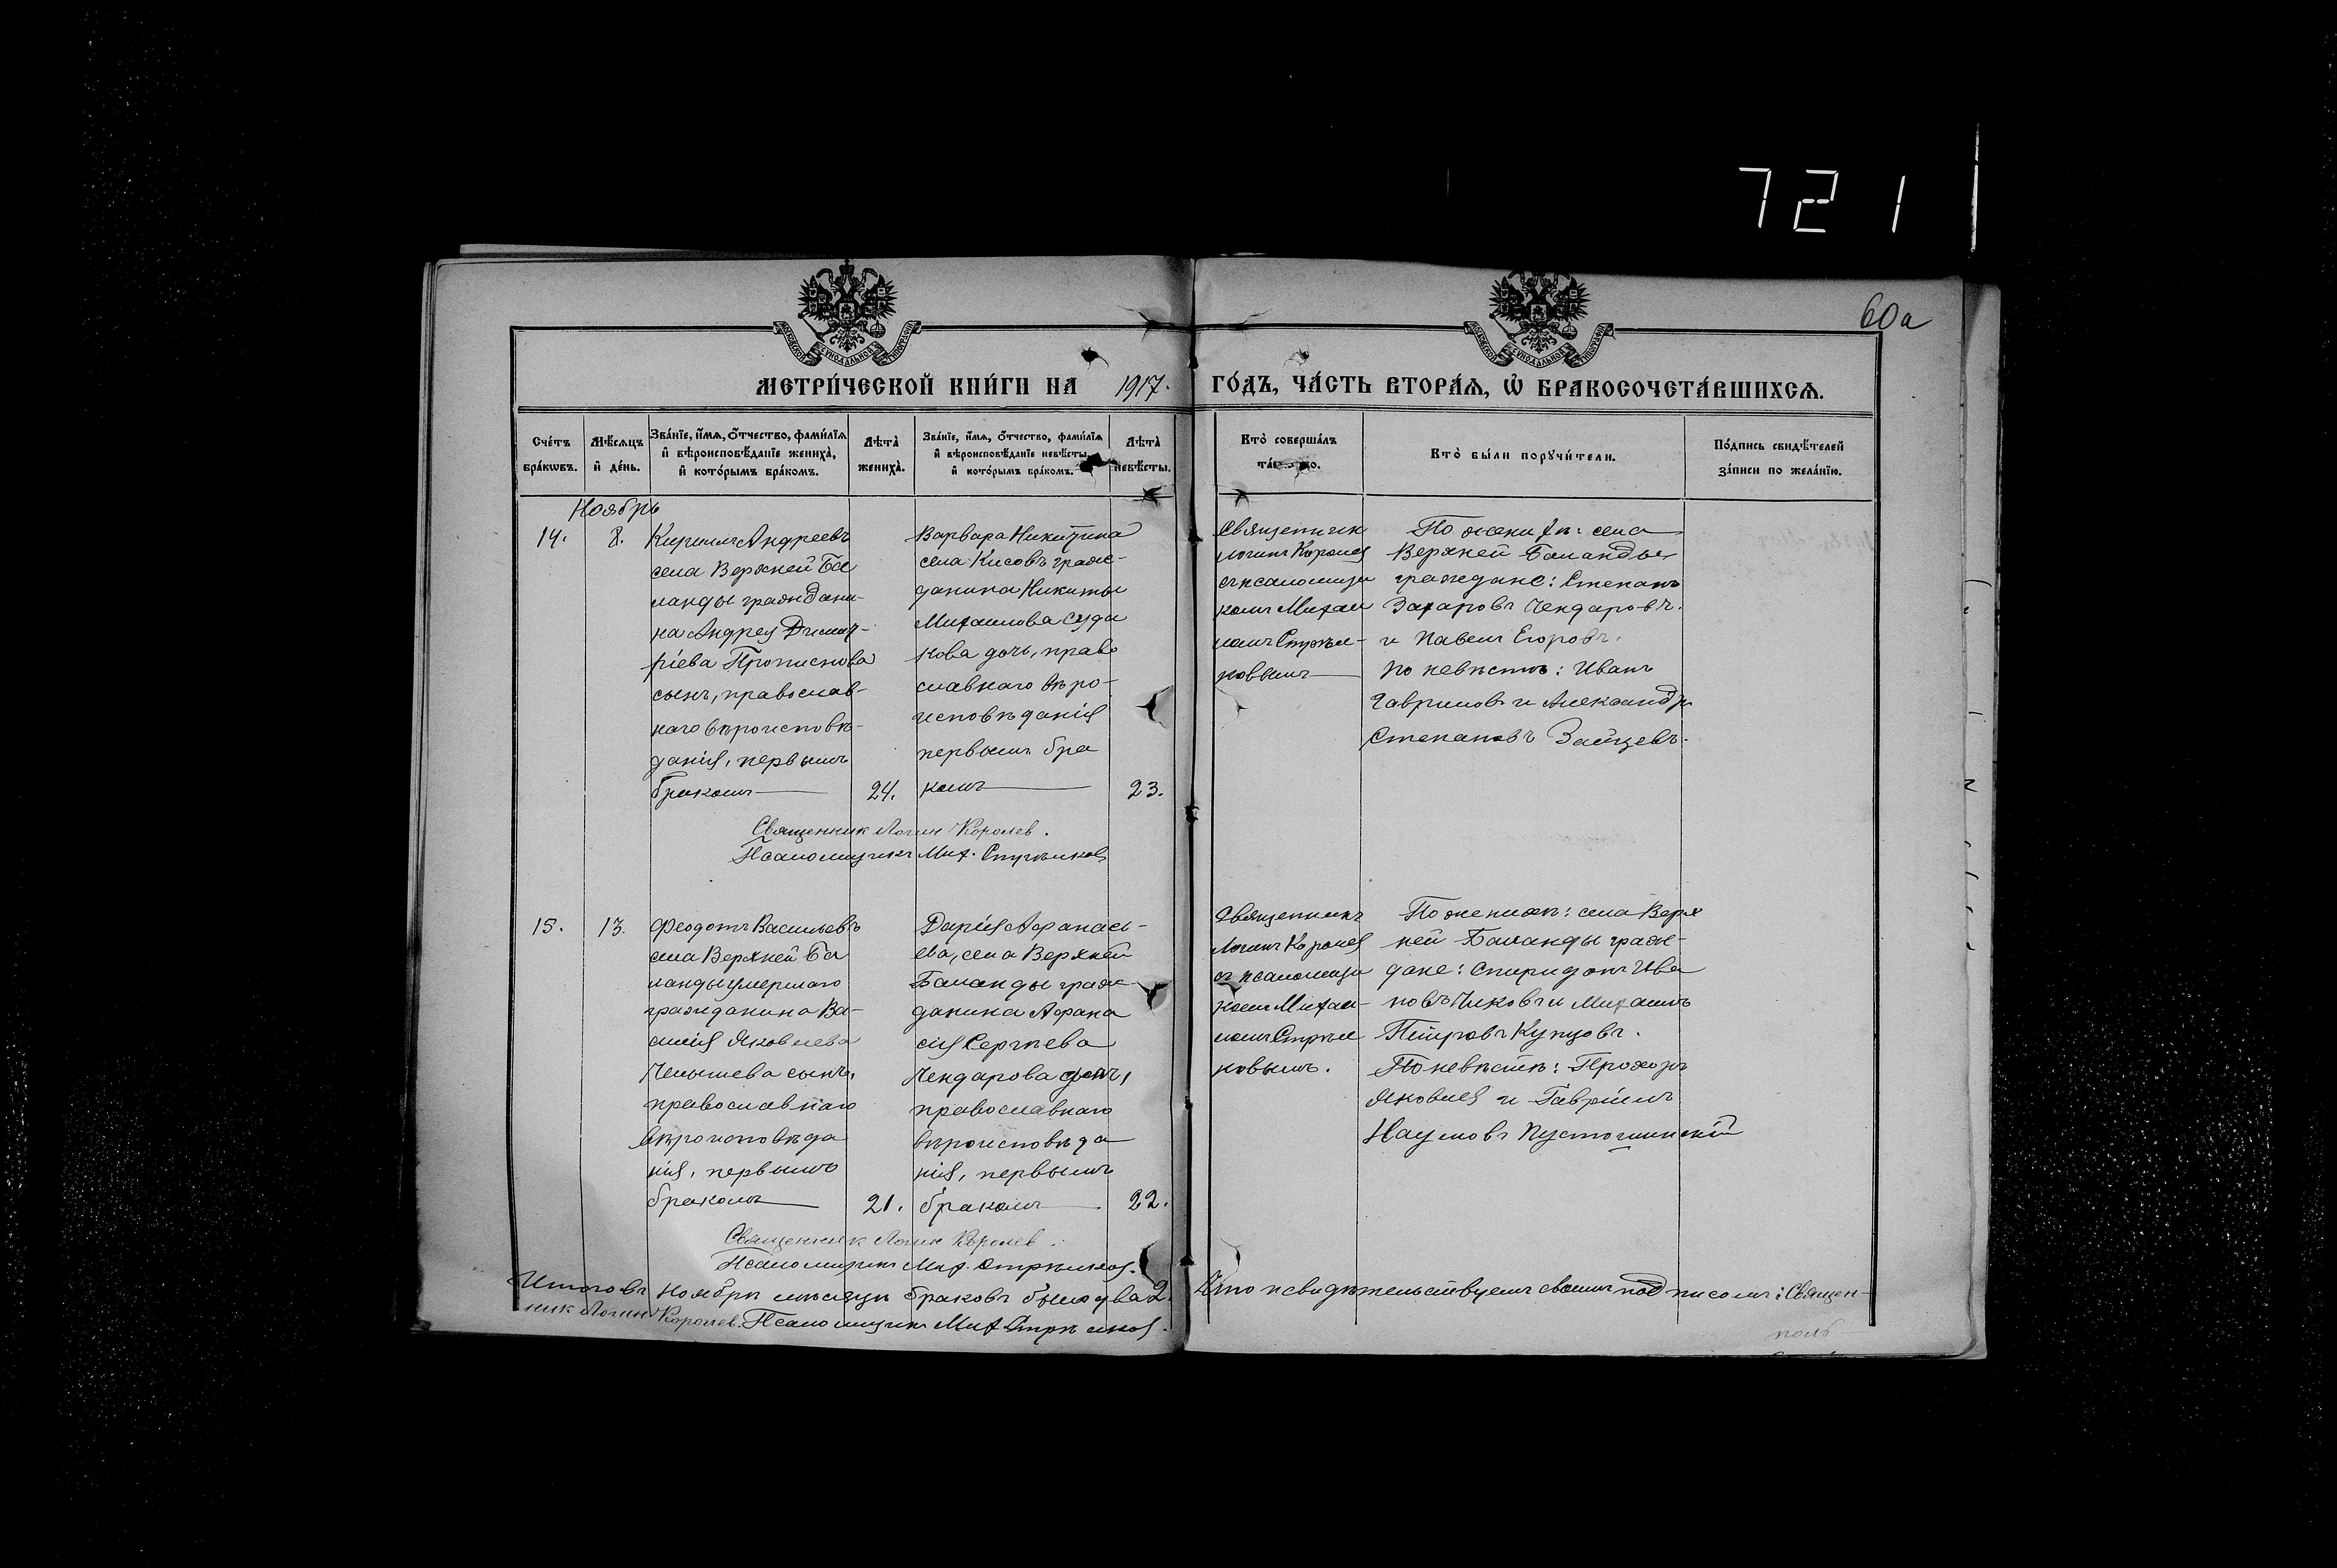 721
60а
МЕТРИ́ЧЕСКОЙ КНИ́ГИ НА 1917. ГО́ДЪ, ЧА́СТЬ ВТОРА́Ѧ, Ѡ҆ БРАКОСОЧЕТА́ВШИХСѦ.
Сче́тъ бра́кѡвъ.
Мѣ́сяцъ и҆ де́нь.
Зва́нїе, и҆́мѧ, о҆́тчество, фами́лїѧ и҆ вѣроисповѣ́данїе жениха̀, и҆ кото́рымъ бра́комъ.
Лѣта̀ жениха̀.
Зва́нїе, и҆́мѧ, о҆́тчество, фами́лїѧ и҆ вѣроисповѣ́данїе невѣ́сты, и҆ кото́рымъ бра́комъ.
Лѣта̀ невѣ́сты.
Кто̀ соверша́лъ
Кто̀ бы́ли порꙋчи́тели.
По́дпись свидѣ́телей за́писи по жела́нїю.
Ноябрь
14. 8.
Кириллъ Андреевъ
села Верхней Ба
ланды граждани-
на Андрея Димит-
ріева Прописнова
сынъ, православ-
наго вѣроисповѣ-
данія, первымъ
бракомъ 24.
Варвара Никитина
села Кисовъ граж-
данина Никиты
Михаилова Суда
кова дочь, право
славнаго вѣро-
исповѣданія
первымъ бра
комъ 23.
Священник
Логинъ Королев
съ псаломщи
комъ Михаи
ломъ Стрѣл-
ковымъ
По жених: села
Верхней Баланды
граждане: Степанъ
Захаровъ Чендаровъ.
и Павелъ Егоровъ.
По невѣстѣ: Иванъ
Гавриловъ и Александръ
Степановъ Зайцевъ.
Священник Логин Королев.
Псаломщикъ Мих. Стрѣлков
15. 13.
Феодотъ Васильевъ
села Верхней Ба
ланды умершаго
гражданина Ва-
силія Яковлева
Челышева сынъ,
православнаго
вѣроисповѣда
нія, первымъ
бракомъ 21.
Дарія Афанась-
ева, села Верхней
Баланды граж-
данина Афана
сія Сергѣева
Чендарова дочь,
православнаго
вѣроисповѣда
нія, первымъ
бракомъ 22.
Священникъ
Логинъ Королев
съ псаломщи
комъ Михаи-
ломъ Стрѣл
ковымъ.
По женихѣ: села Верх
ней Баланды граж-
дане: Спиридонъ Ива
новъ и Михаилъ
Петровъ Купцовъ.
По невѣстѣ: Прохоръ
Яковлев и Гавріилъ
Наумовъ Пустошинскій
Священник Логин Королев.
Псаломщикъ Мих. Стрѣлков.
Итого въ Ноябрѣ мѣсяцѣ браковъ было два 2. Что и свидѣтельствуемъ своимъ подписомъ: Священ-
ник Логин Королев. Псаломщикъ Мих Стрѣлков.